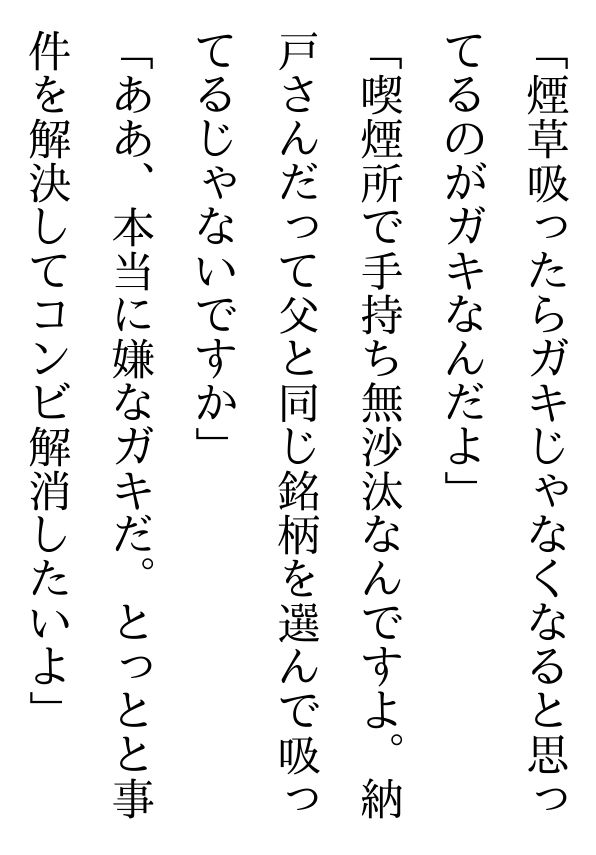 「煙草吸ったらガキじゃなくなると思っ
てるのがガキなんだよ」
「喫煙所で手持ち無沙汰なんですよ。納
戸さんだって父と同じ銘柄を選んで吸っ
てるじゃないですか」
「ああ、本当に嫌なガキだ。とっとと事
件を解決してコンビ解消したいよ」